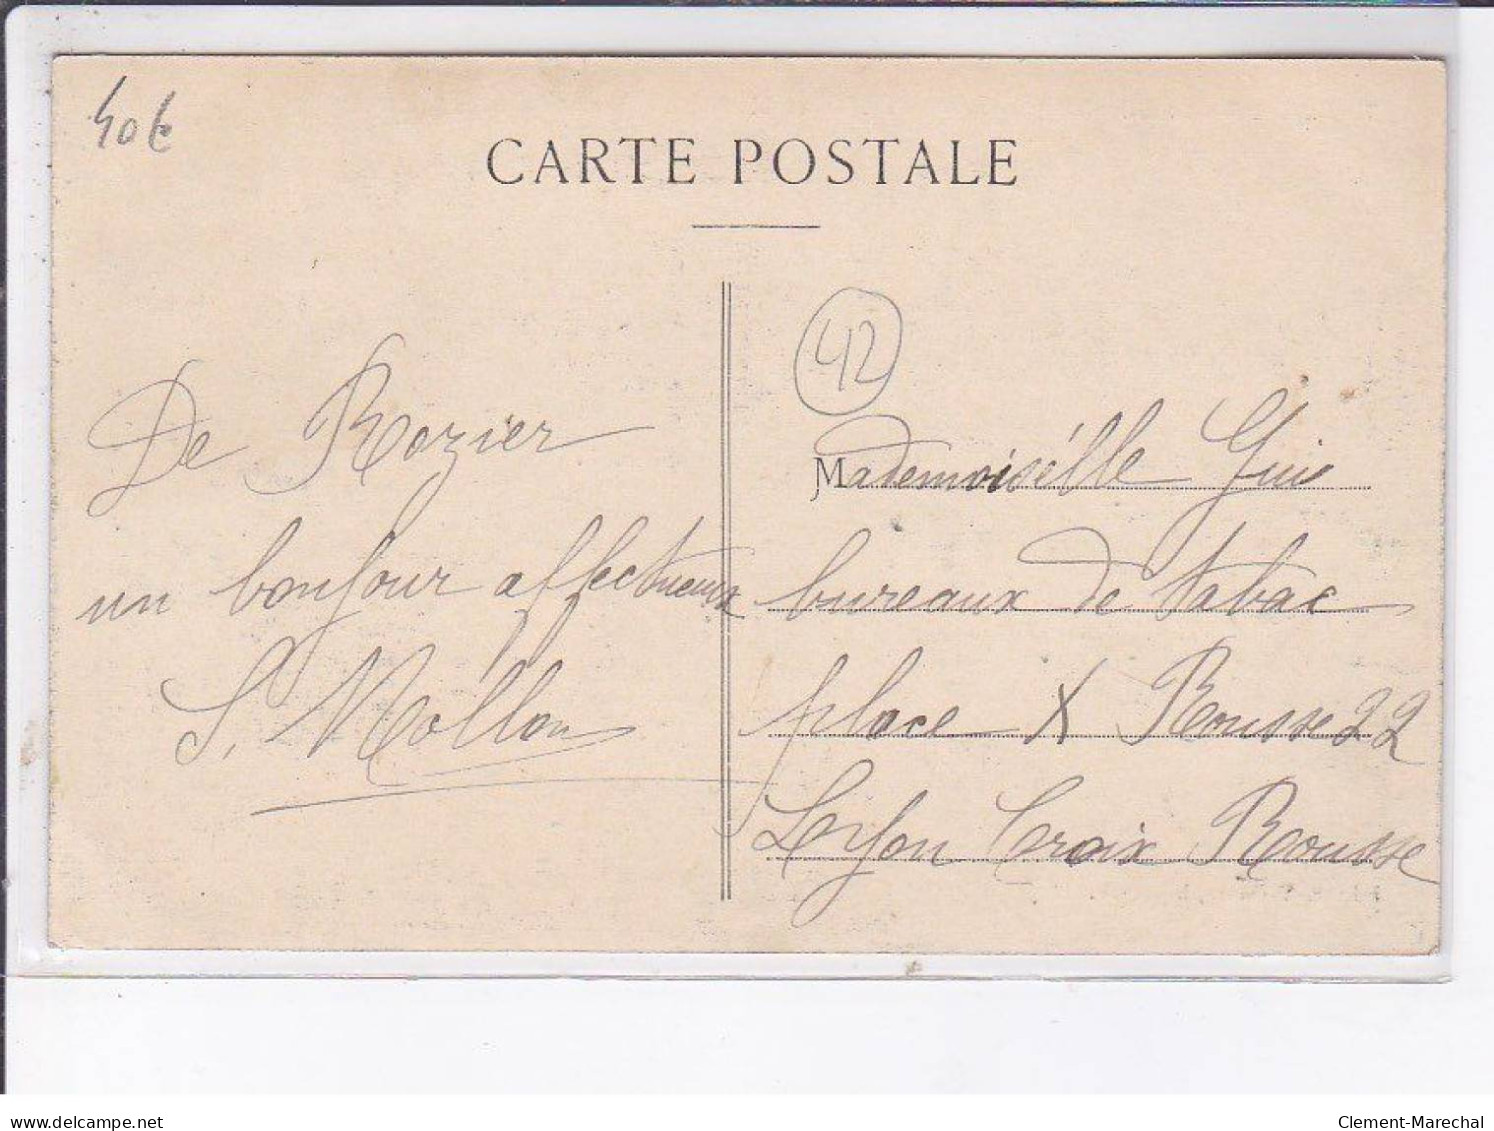 40€
CARTE POSTALE
42
De Rozier
un bonjour affectueux
S. Mollon
Mademoisélle Gui
bureaux de tabac
place X Rousse 22
Lyon Croix Rousse
www.delcampe.net
Clement-Marechal